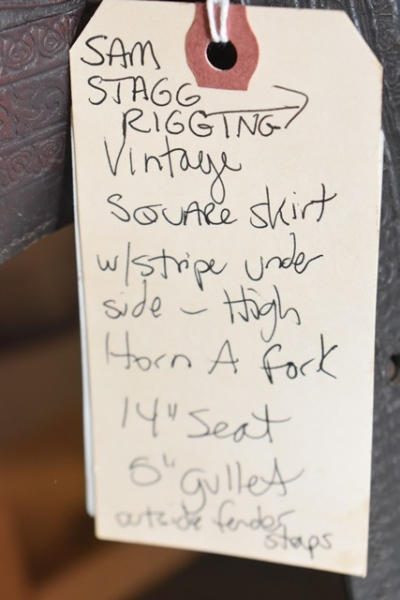 SAM
STAGG
RIGGING →
Vintage
SQUARE skirt
w/stripe under
side - High
Horn A fork
14" Seat
6" gullet
outside fender
straps